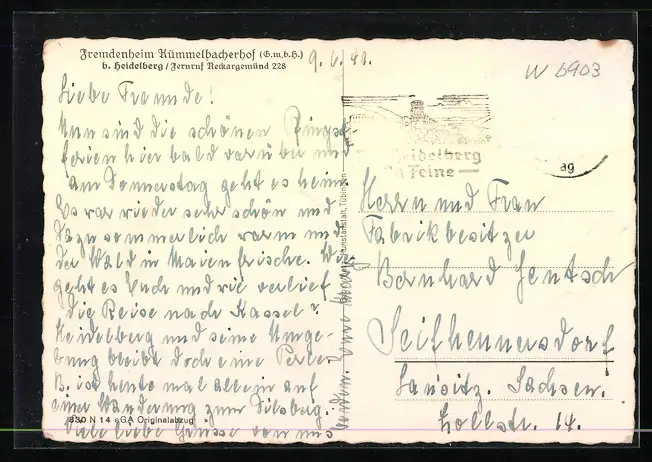 Fremdenheim Kümmelbacherhof (G.m.b.H.)
b. Heidelberg / Fernruf Neckargemünd 228
9. 6. 40.
W 6903
Liebe Freunde!
Nun sind die schönen Pfingst-
ferien hier bald vorüber und
am Donnerstag geht es heim.
Es war wieder sehr schön und
dazu sommerlich warm und
der Wald in Maienfrische. Wie
geht es Euch und wie verlief
die Reise nach Kassel?
Heidelberg und seine Umge-
bung bleibt doch eine Perle.
B. ist heute mal allein auf
einer Wanderung zum Dilsberg.
Viele liebe Grüsse von uns
beiden. Eure
830 N 14 GA Originalabzug
Kunstanstalt, Tübingen
Heidelberg
Feine
ag
Herrn und Frau
Fabrikbesitzer
Bernhard Jentsch
Seifhennersdorf
Lausitz. Sachsen.
Zollstr. 14.